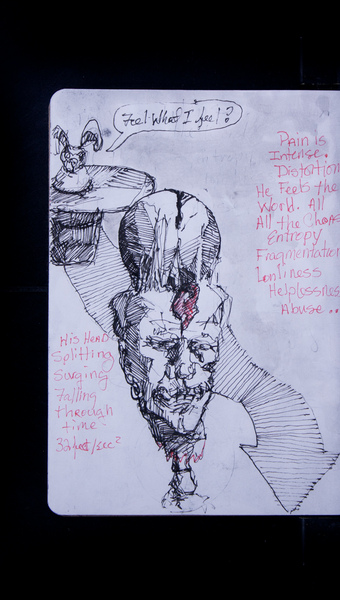 Feel What I feel?
Pain is
Intense.
Distortion
He Feels the
World. All
All the Chaos
Entropy
Fragmentation
Lonliness
Helplessness
Abuse...
His Head
Splitting
Surging
Falling
through
time -
32 feet/sec²